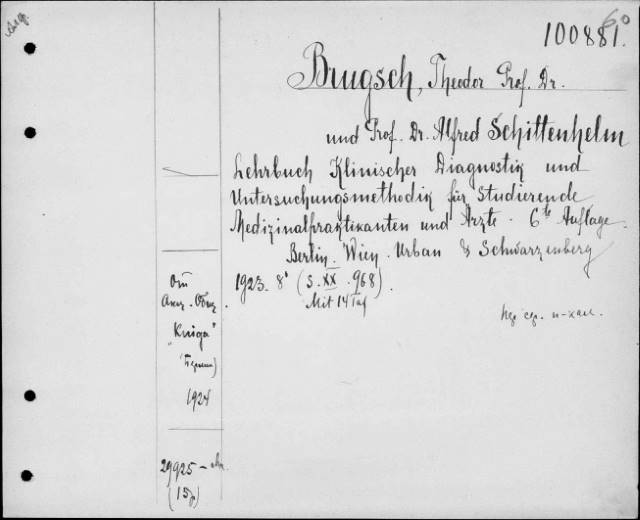 100881.
Brugsch, Theodor Prof. Dr.
und Prof. Dr. Alfred Schittenhelm
Lehrbuch Klinischer Diagnostik und
Untersuchungsmethodik für Studierende
Medizinalpraktikanten und Ärzte. 6te Auflage.
Berlin. Wien. Urban & Schwarzenberg
1923. 8° (S. XX. 968).
Mit 14 Taf
От
Акц. Общ.
"Книга"
1924
29925
(15р)